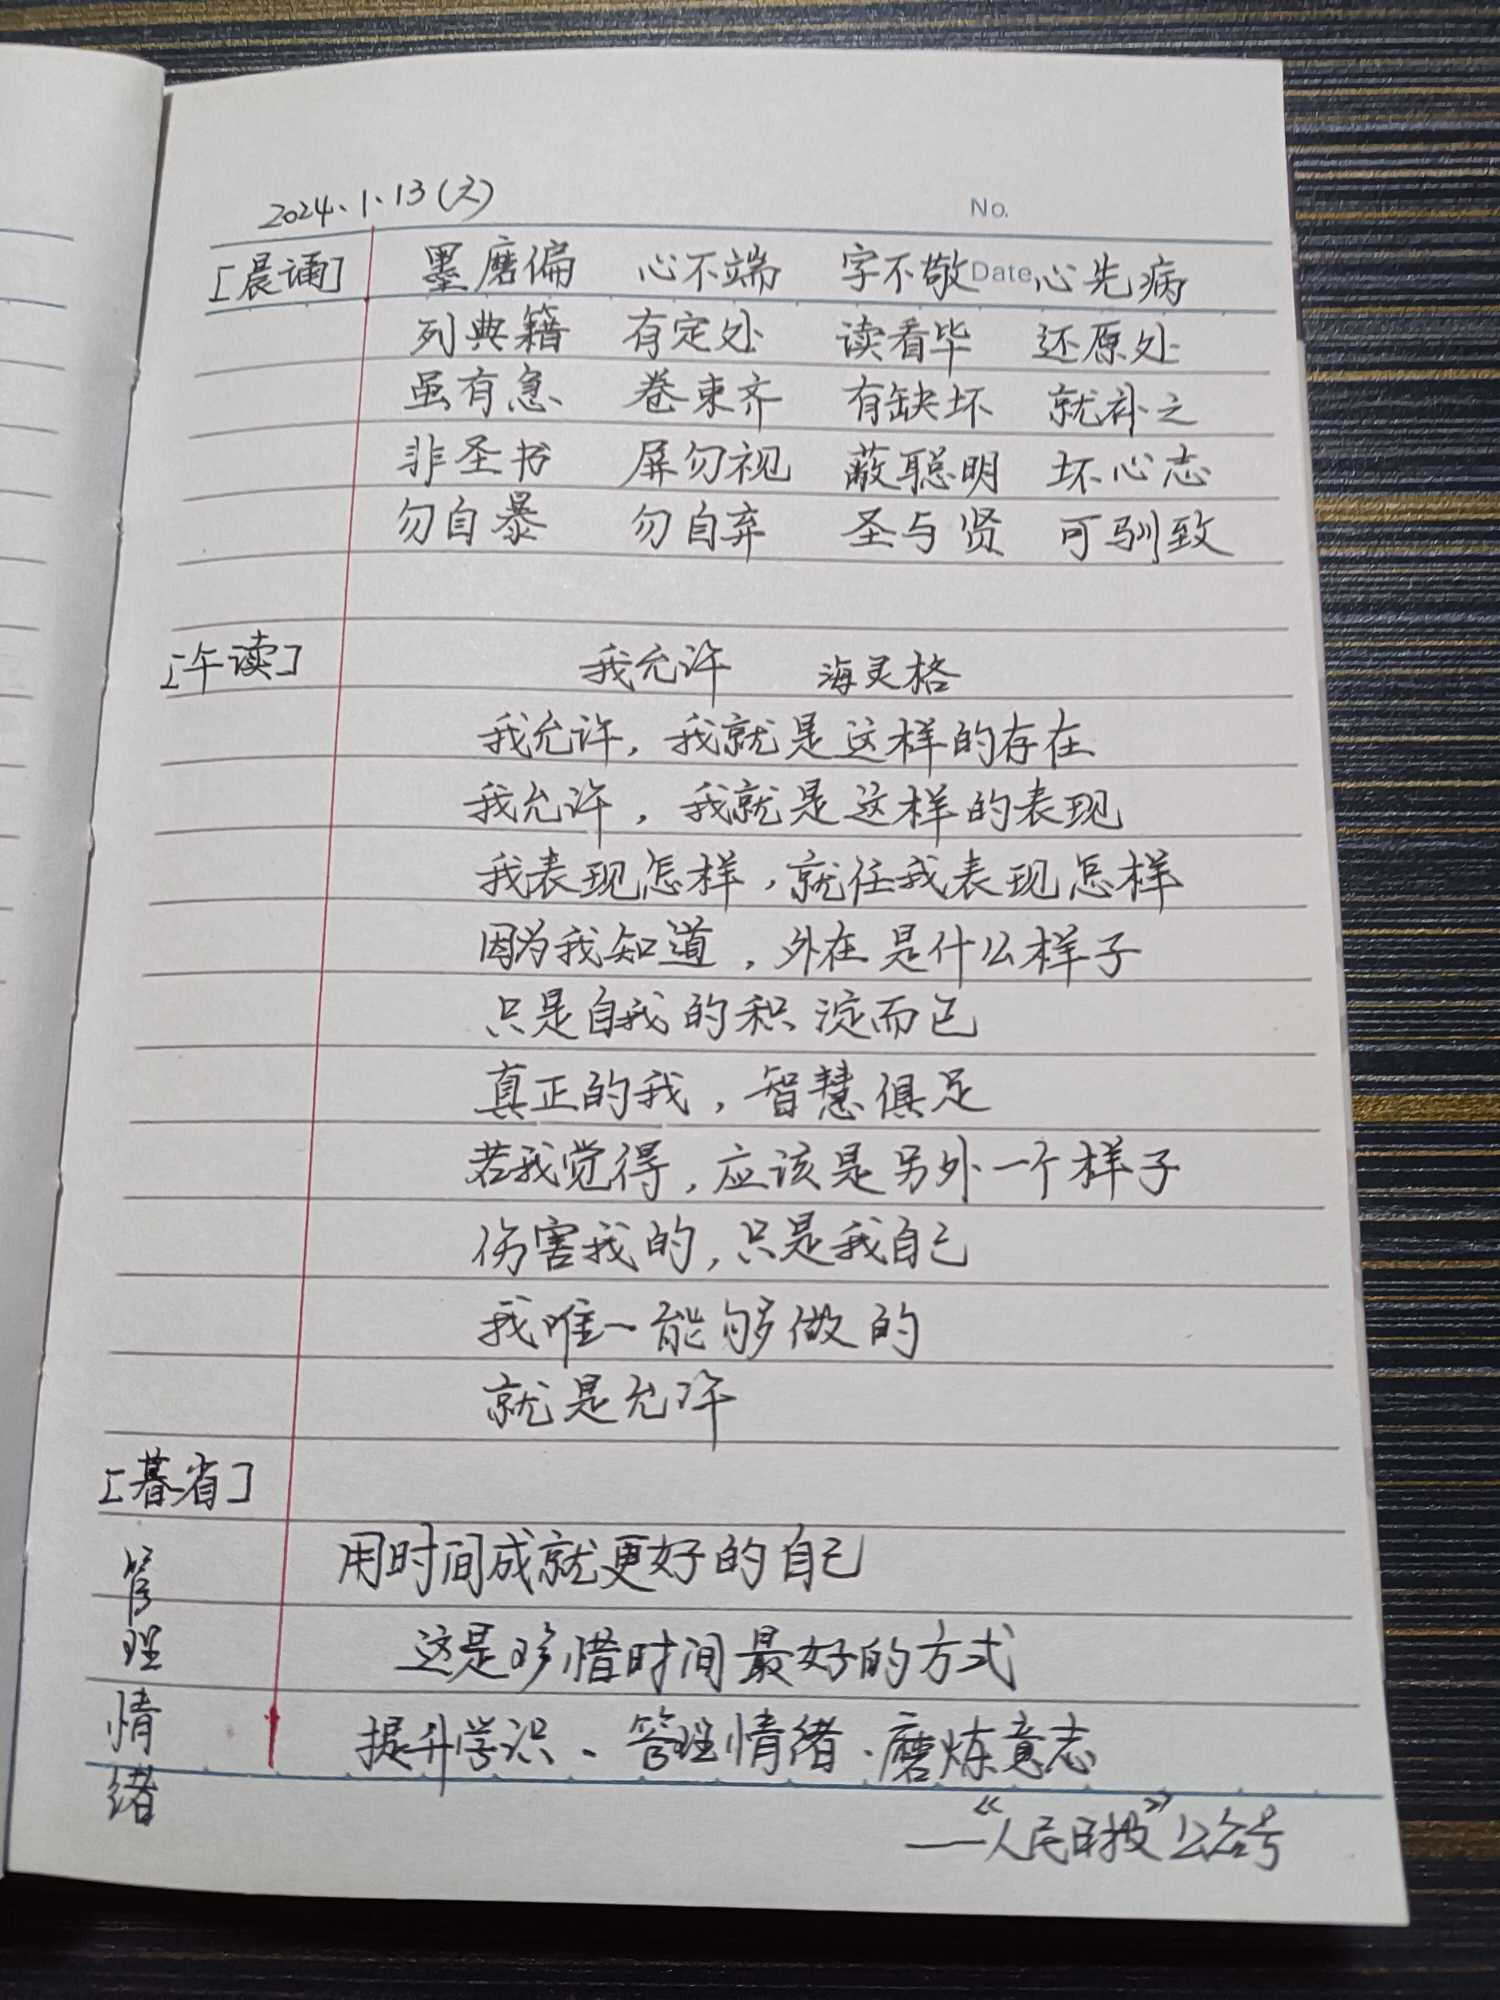 2024.1.13(六)
No.
[晨诵] 墨磨偏 心不端 字不敬 Date 心先病
列典籍 有定处 读看毕 还原处
虽有急 卷束齐 有缺坏 就补之
非圣书 屏勿视 蔽聪明 坏心志
勿自暴 勿自弃 圣与贤 可驯致
[午读] 我允许 海灵格
我允许,我就是这样的存在
我允许,我就是这样的表现
我表现怎样,就任我表现怎样
因为我知道,外在是什么样子
只是自我的积淀而已
真正的我,智慧俱足
若我觉得,应该是另外一个样子
伤害我的,只是我自己
我唯一能够做的
就是允许
[暮省]
管理情绪
用时间成就更好的自己
这是珍惜时间最好的方式
提升学识、管理情绪、磨炼意志
——“《人民日报》”公众号